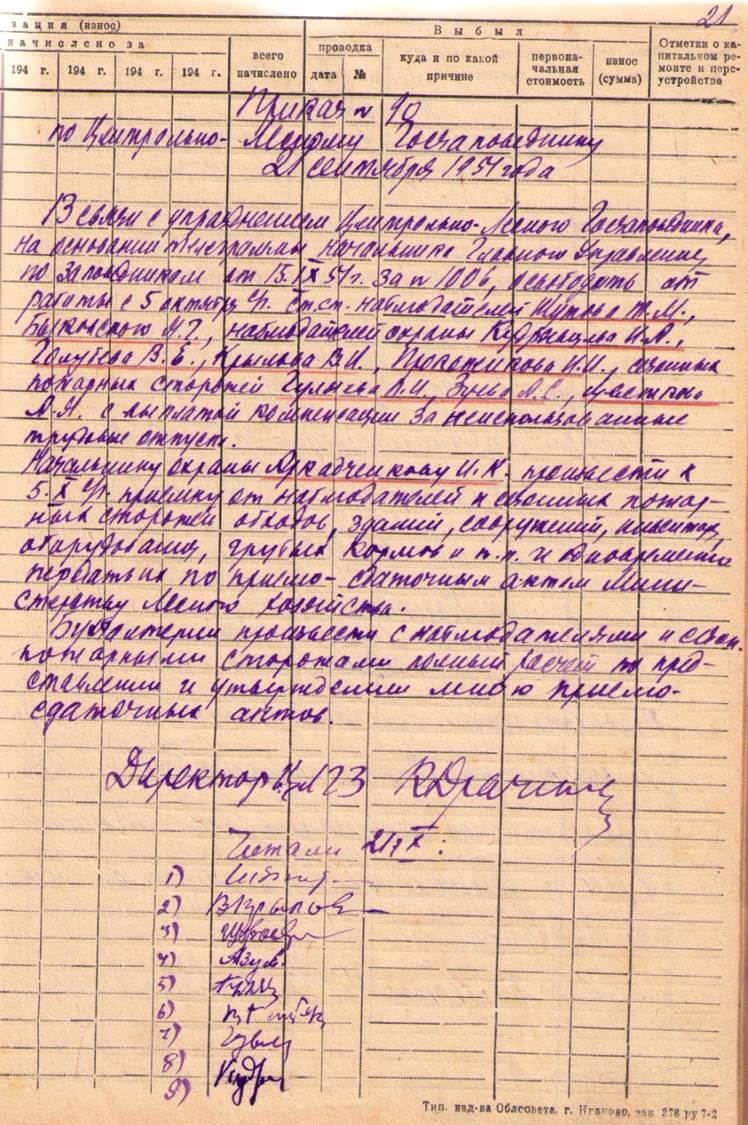 21
зация (износ)
Выбыл
начислено за
всего начислено
проводка
куда и по какой причине
первона-чальная стоимость
износ (сумма)
Отметки о ка-питальном ре-монте и пере-устройстве
194 г. 194 г. 194 г. 194 г.
дата №
Приказ № 90
по Центрально-Лесному Госзаповеднику
21 сентября 1951 года
В связи с упразднением Центрально-Лесного Госзаповедника,
на основании телеграммы начальника Главного Управления
по заповедникам от 15.IX 51г. за № 1006, освободить от
работы с 5 октября с/г. ст.ст. наблюдателей
наблюдателей охраны Кудрявцева И.А.,
Голубева В.Е., Крылова В.И.,
пожарных сторожей Зуева А.С.,
А.Я. с выплатой компенсации за неиспользованные
трудовые отпуска.
Начальнику охраны Аркадченкову И.К. произвести к
5.X с/г. приемку от наблюдателей и сезонных пожар-
ных сторожей обходов, зданий, сооружений,
оборудования, грубых кормов и т.п. и одновременно
передать их по приемо-сдаточным актам Мини-
стерству Лесного хозяйства.
Бухгалтерии произвести с наблюдателями и сезон.
пожарными сторожами полный расчет по пред-
ставлении и утверждении мною приемо-
сдаточных актов.
Директор
Читали 21/IX:
1)
2) ВКрылов
3)
4) Азуев
5)
6)
7)
8) Кудр
9)
Тип. изд-ва Облсовета, г. Иваново, зак. 378 ру 7-2